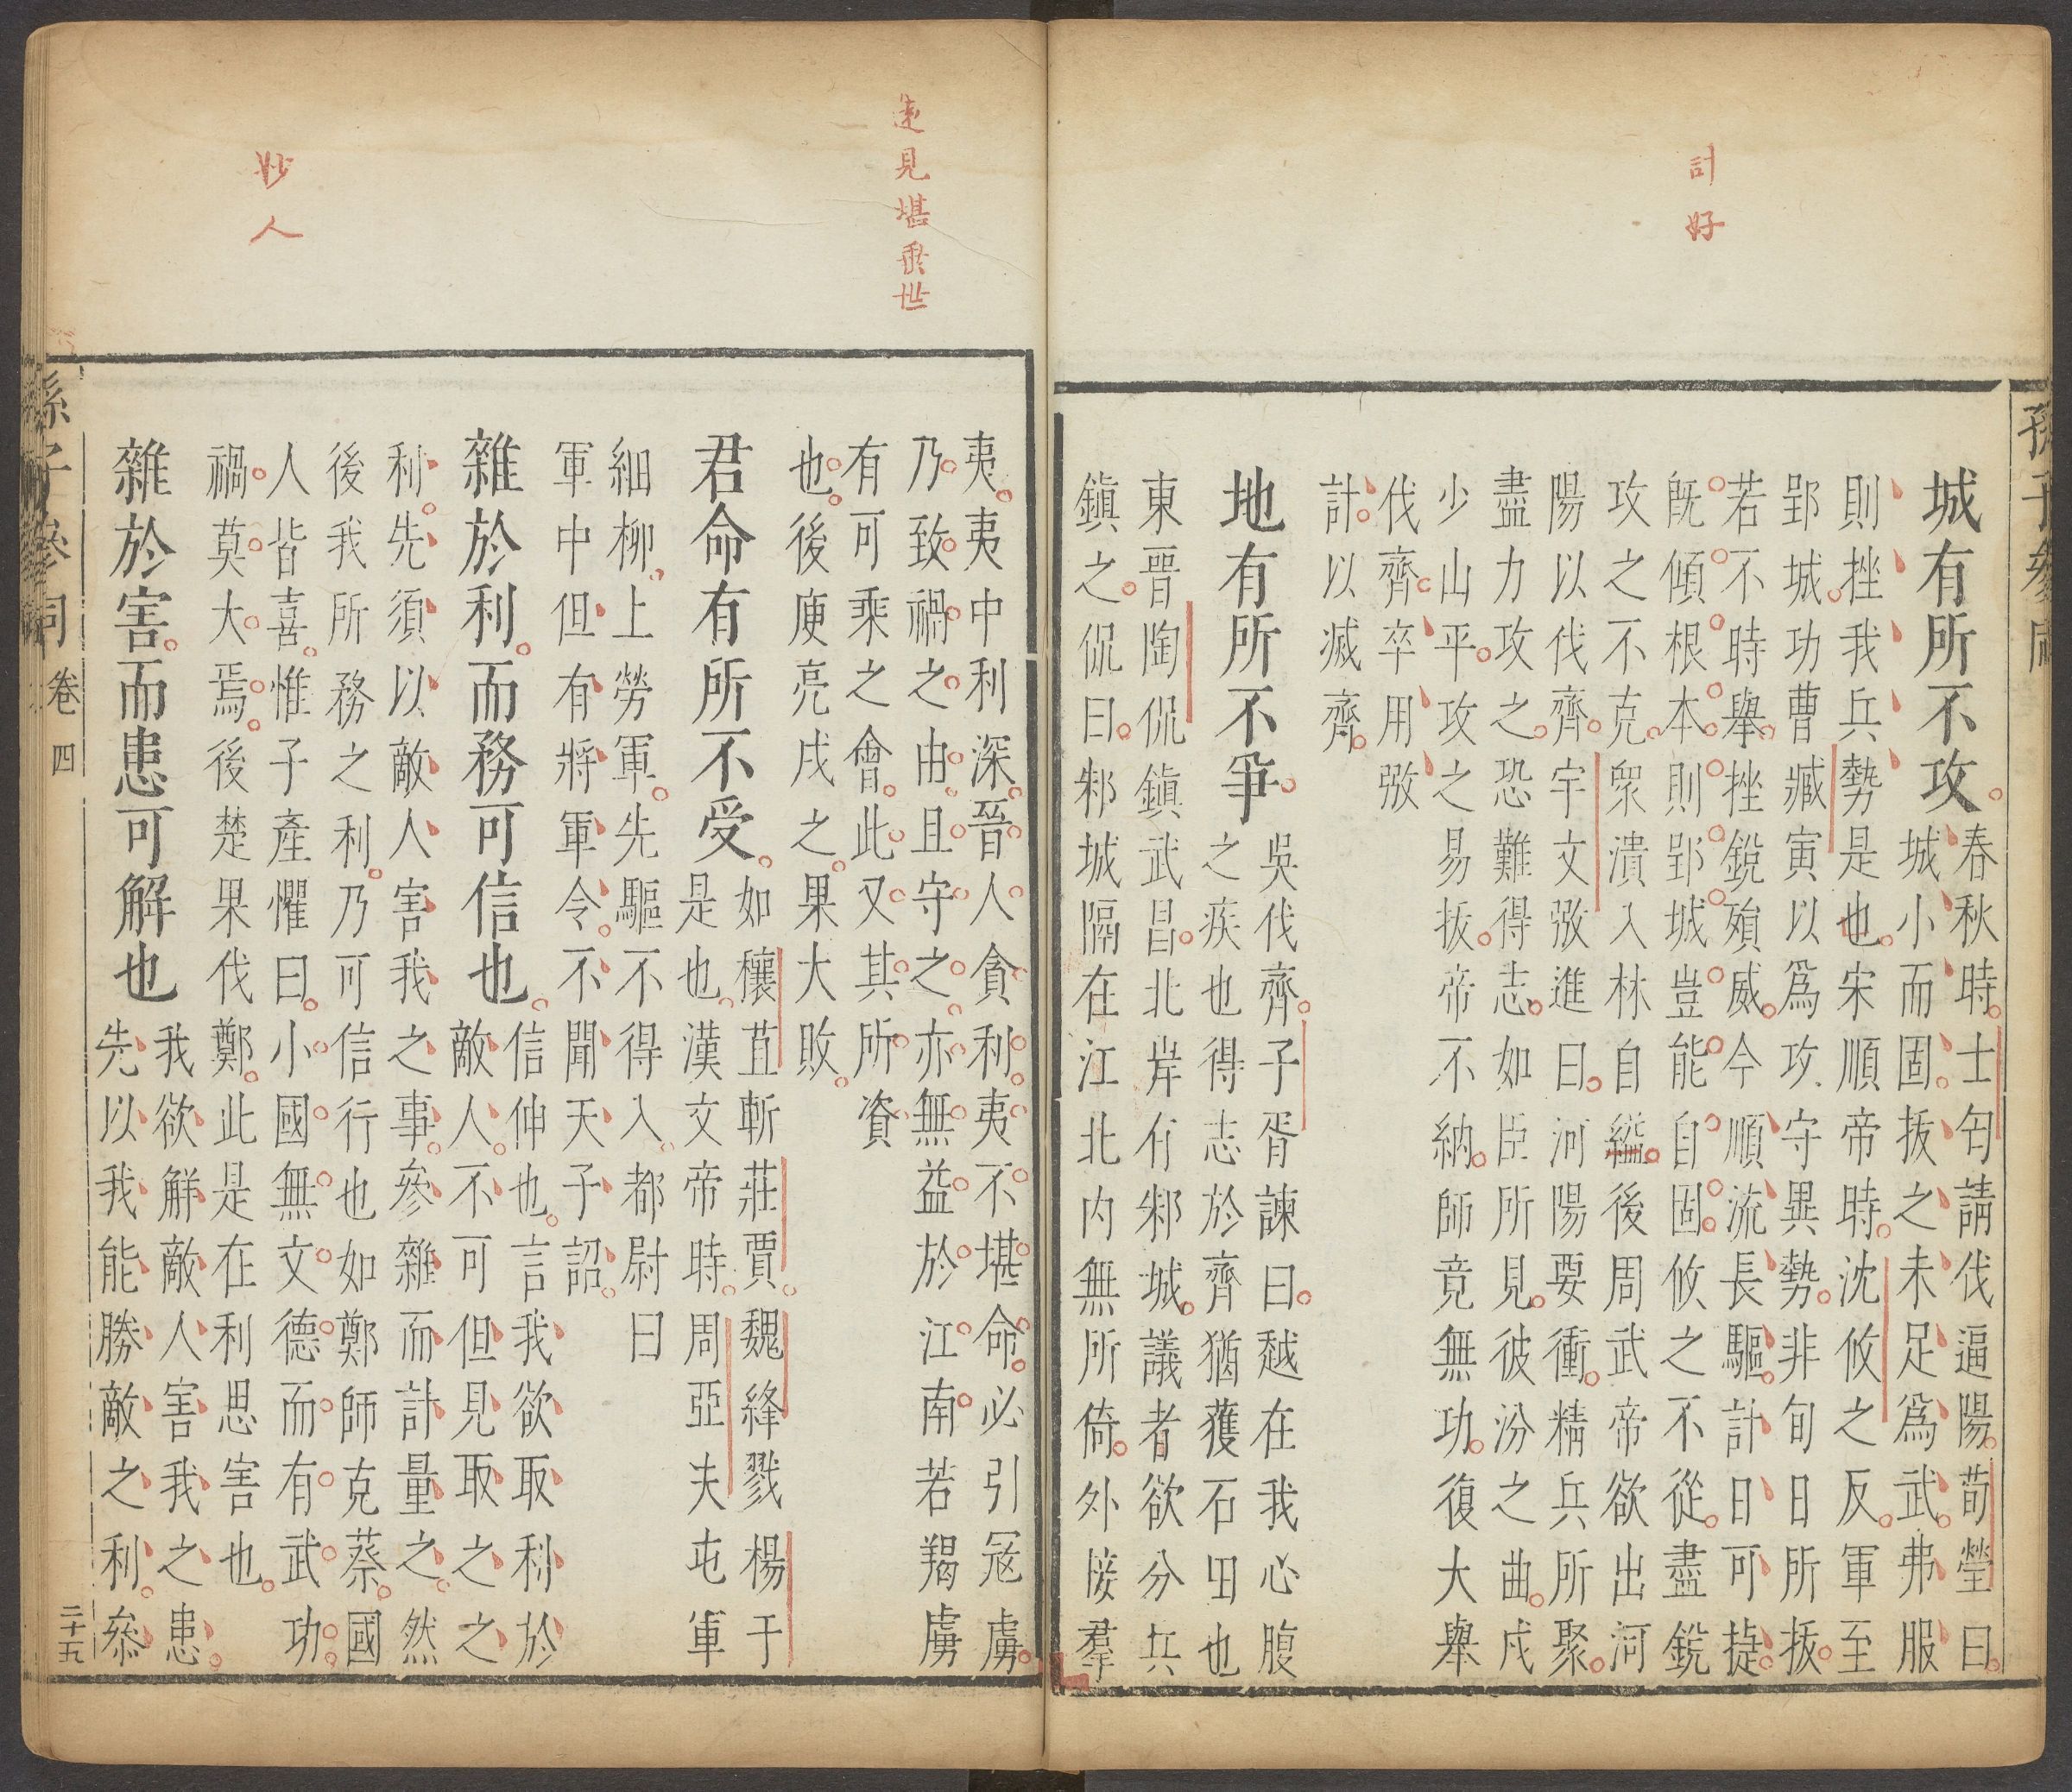 孫子參同
計好
城有所不攻。春秋時。士匄請伐逼陽。荀瑩曰。
城小而固。拔之未足爲武。弗服
則挫我兵勢是也。宋順帝時。沈攸之反。軍至
郢城。功曹臧寅以爲攻守異勢。非旬日所拔。
若不時舉。挫銳殞威。今順流長驅。計日可捷。
旣傾根本。則郢城豈能自固。攸之不從。盡銳
攻之不克。眾潰入林自縊。後周武帝欲出河
陽以伐齊。宇文弢進曰。河陽要衝。精兵所聚。
盡力攻之。恐難得志。如臣所見。彼汾之曲。戍
少山平。攻之易拔。帝不納。師竟無功。復大舉
伐齊。卒用弢
計。以滅齊。
地有所不爭。吳伐齊。子胥諫曰。越在我心腹
之疾也得志於齊猶獲石田也
東晉陶侃鎮武昌。北岸有邾城。議者欲分兵
鎮之。侃曰。邾城隔在江北。內無所倚。外接羣
遠見堪垂世
夷。夷中利深。晉人貪利。夷不堪命。必引寇虜。
乃致禍之由。且守之。亦無益於江南。若羯虜
有可乘之會。此又其所資
也。後庾亮戍之。果大敗。
君命有所不受。如穰苴斬莊賈。魏絳戮楊于
是也。漢文帝時。周亞夫屯軍
細柳。上勞軍。先驅不得入。都尉曰
軍中但有將軍令。不聞天子詔。
雜於利。而務可信也。信伸也。言我欲取利於
敵人。不可但見取之之
利。先須以敵人害我之事。參雜而計量之。然
後我所務之利。乃可信行也如鄭師克蔡。國
妙人
人皆喜。惟子產懼曰。小國無文德而有武功。
禍莫大焉。後楚果伐鄭。此是在利思害也。
雜於害。而患可解也我欲解敵人害我之患。
先以我能勝敵之利。叅
孫子參同 卷四
二十五